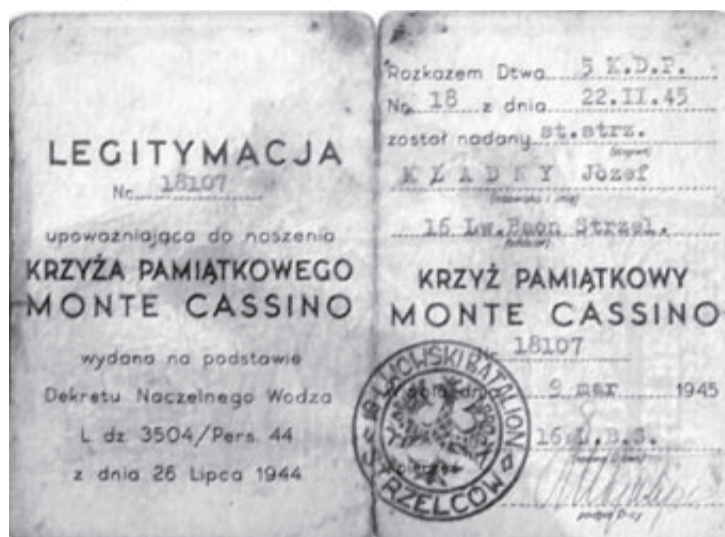 LEGITYMACJA
Nr 18107
upoważniająca do noszenia
KRZYŻA PAMIĄTKOWEGO
MONTE CASSINO
wydana na podstawie
Dekretu Naczelnego Wodza
L. dz. 3504/Pers. 44
z dnia 26 Lipca 1944
Rozkazem Dtwa 5 K.D.P.
No 18 z dnia 22.II.45
został nadany st.strz.
(stopień)
KŁADNY Józef
(nazwisko i imię)
16 Lw.Baon Strzel.
(oddział)
KRZYŻ PAMIĄTKOWY
MONTE CASSINO
Nr 18107
9 mar 1945
16 L.B.S.
podpis D-cy
16 LWOWSKI BATALION STRZELCÓW